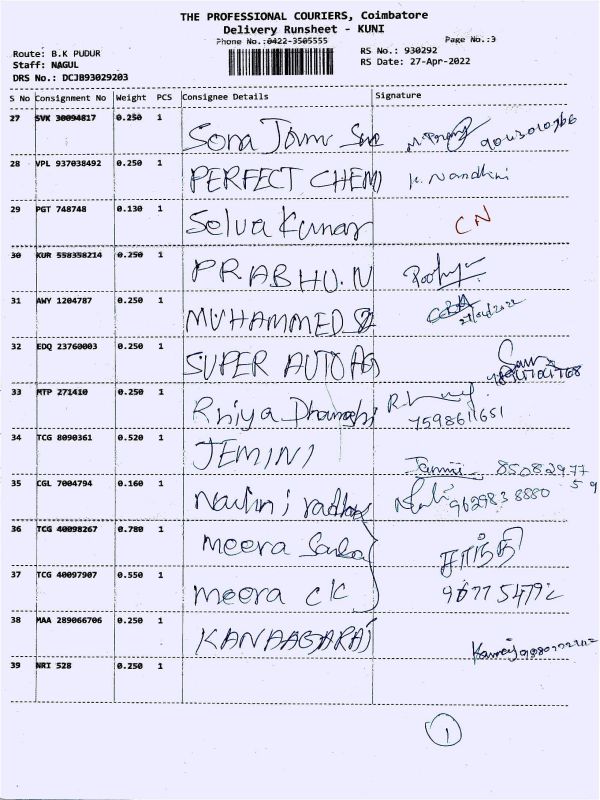 THE PROFESSIONAL COURIERS, Coimbatore
Delivery Runsheet - KUNI
Phone No.:0422-3505555 Page No.:3
Route: B.K PUDUR RS No.: 930292
Staff: NAGUL RS Date: 27-Apr-2022
DRS No.: DCJB93029203
S No Consignment No Weight PCS Consignee Details Signature
27 SVK 30094817 0.250 1 Sona
28 VPL 937038492 0.250 1 PERFECT CHEM K. Nandhini
29 PGT 748748 0.130 1 Selva Kumar CN
30 KUR 558358214 0.250 1 PRABHU.N
31 AWY 1204787 0.250 1 MUHAMMED 27/04/2022
32 EDQ 23760003 0.250 1 SUPER AUTO AG
33 MTP 271410 0.250 1 Rhiya 7598611651
34 TCG 8090361 0.520 1 JEMINI
35 CGL 7004794 0.160 1 9629838880
36 TCG 40098267 0.780 1 meera சாந்தி
37 TCG 40097907 0.550 1 meera CK
38 MAA 289066706 0.250 1 KANAAGARAJ
39 NRI 528 0.250 1
1